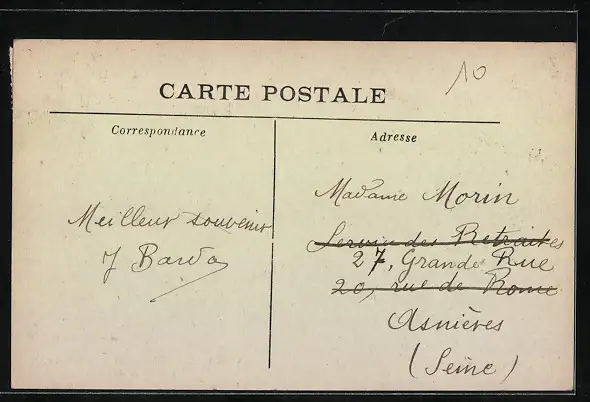 10
CARTE POSTALE
Correspondance
Adresse
Meilleur souvenir
J Barda
Madame Morin
Service des Retraites
27, Grande Rue
20, rue de Rome
Asnières
(Seine)